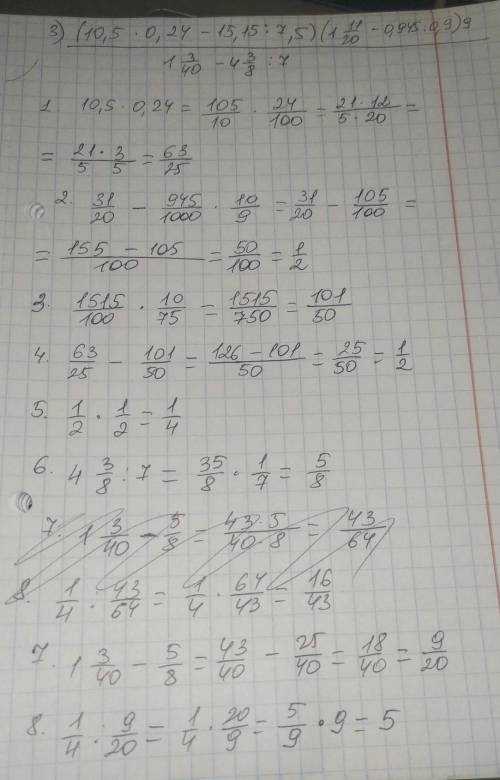 3) (10,5 · 0,24 - 15,15 : 7,5)(1 11/20 - 0,945 : 0,9)9
1 3/40 - 4 3/8 : 7
1. 10,5 · 0,24 = 105/10 · 24/100 = 21 · 12/5 · 20 =
= 21 · 3/5 5 = 63/25
2. 31/20 - 945/1000 · 10/9 = 31/20 - 105/100 =
= 155 - 105/100 = 50/100 = 1/2
3. 1515/100 · 10/75 = 1515/750 = 101/50
4. 63/25 - 101/50 = 126 - 101/50 = 25/50 = 1/2
5. 1/2 · 1/2 = 1/4
6. 4 3/8 : 7 = 35/8 · 1/7 = 5/8
7. 1 3/40 - 5/8 = 43 · 5/40 · 8 = 43/64
8. 1/4 : 43/64 = 1/4 · 64/43 = 16/43
7. 1 3/40 - 5/8 = 43/40 - 25/40 = 18/40 = 9/20
8. 1/4 : 9/20 = 1/4 · 20/9 = 5/9 · 9 = 5